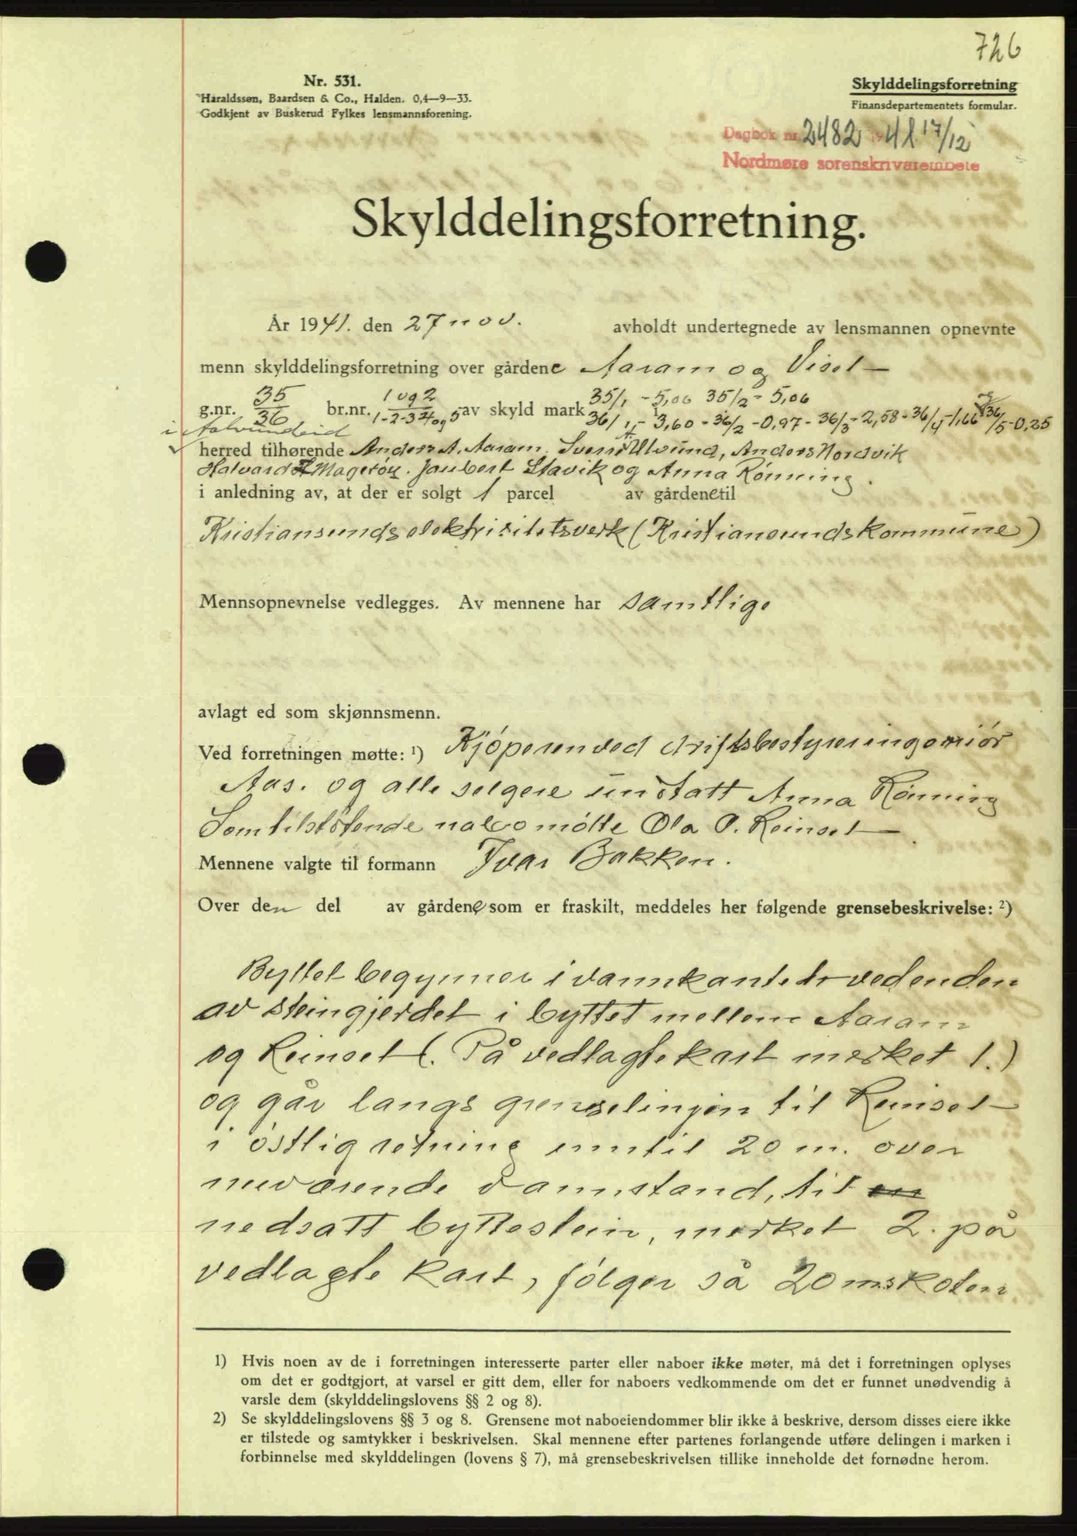 726
Nr. 531.
Haraldssen, Baardsen & Co., Halden. 0,4—9—33.
Godkjent av Buskerud Fylkes lensmannsforening.
Skylddelingsforretning
Finansdepartementets formular.
Dagbok nr. 2482 1941 17/12
Nordmøre sorenskriverembete
Skylddelingsforretning.
År 1941. den 27 nov. avholdt undertegnede av lensmannen opnevnte
menn skylddelingsforretning over gårdene Aaram og Visel
g.nr. 35/36 br.nr. 1 og 2 / 1-2-3-4 og 5 av skyld mark 35/1 - 5,06 35/2 - 5,06
36/1 - 3,60 - 36/2 - 0,97 - 36/3 - 2,58 - 36/4 - 1,66 og 36/5 - 0,25
i Aalvundeid
herred tilhørende Anders A. Aaram, Svein Ulvund, Anders Nordvik
Halvard Magerøy. Jaubert Stavik og Anna Rønning.
i anledning av, at der er solgt 1 parcel av gårdene til
Kristiansunds elektrisitetsverk (Kristiansunds kommune)
Mennsopnevnelse vedlegges. Av mennene har samtlige
avlagt ed som skjønnsmenn.
Ved forretningen møtte: ¹) Kjøperen ved driftsbestyrer ingeniør
Aas. og alle selgere unntatt Anna Rønning
Som tilstøtende nabo møtte Ola O. Reinset
Mennene valgte til formann Ivar Bakken.
Over den del av gårdene som er fraskilt, meddeles her følgende grensebeskrivelse: ²)
Byttet begynner i vannkanten ved enden
av steingjerdet i byttet mellem Aaram
og Reinset (. På vedlagte kart merket 1.)
og går langs grenselinjen til Reinset
i østlig retning inntil 20 m. over
nuværende vannstand, til
nedsatt byttestein, merket 2. på
vedlagte kart, følger så 20 mskoten
1) Hvis noen av de i forretningen interesserte parter eller naboer ikke møter, må det i forretningen oplyses
om det er godtgjort, at varsel er gitt dem, eller for naboers vedkommende om det er funnet unødvendig å
varsle dem (skylddelingslovens §§ 2 og 8).
2) Se skylddelingslovens §§ 3 og 8. Grensene mot naboeiendommer blir ikke å beskrive, dersom disses eiere ikke
er tilstede og samtykker i beskrivelsen. Skal mennene efter partenes forlangende utføre delingen i marken i
forbinnelse med skylddelingen (lovens § 7), må grensebeskrivelsen tillike inneholde det fornødne herom.